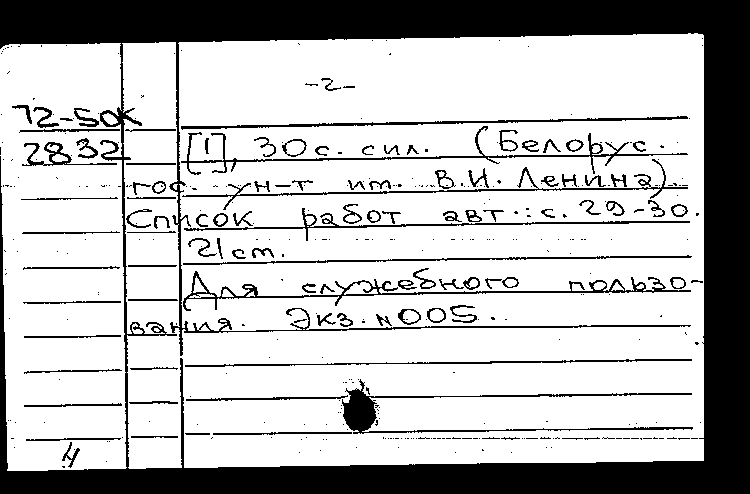 -2-
72-50к
2832 [1], 30 с. с ил. (Белорус.
гос. ун-т им. В.И. Ленина).
Список работ авт.: с. 29-30.
21 ст.
Для служебного пользо-
вания. Экз. №005.
4